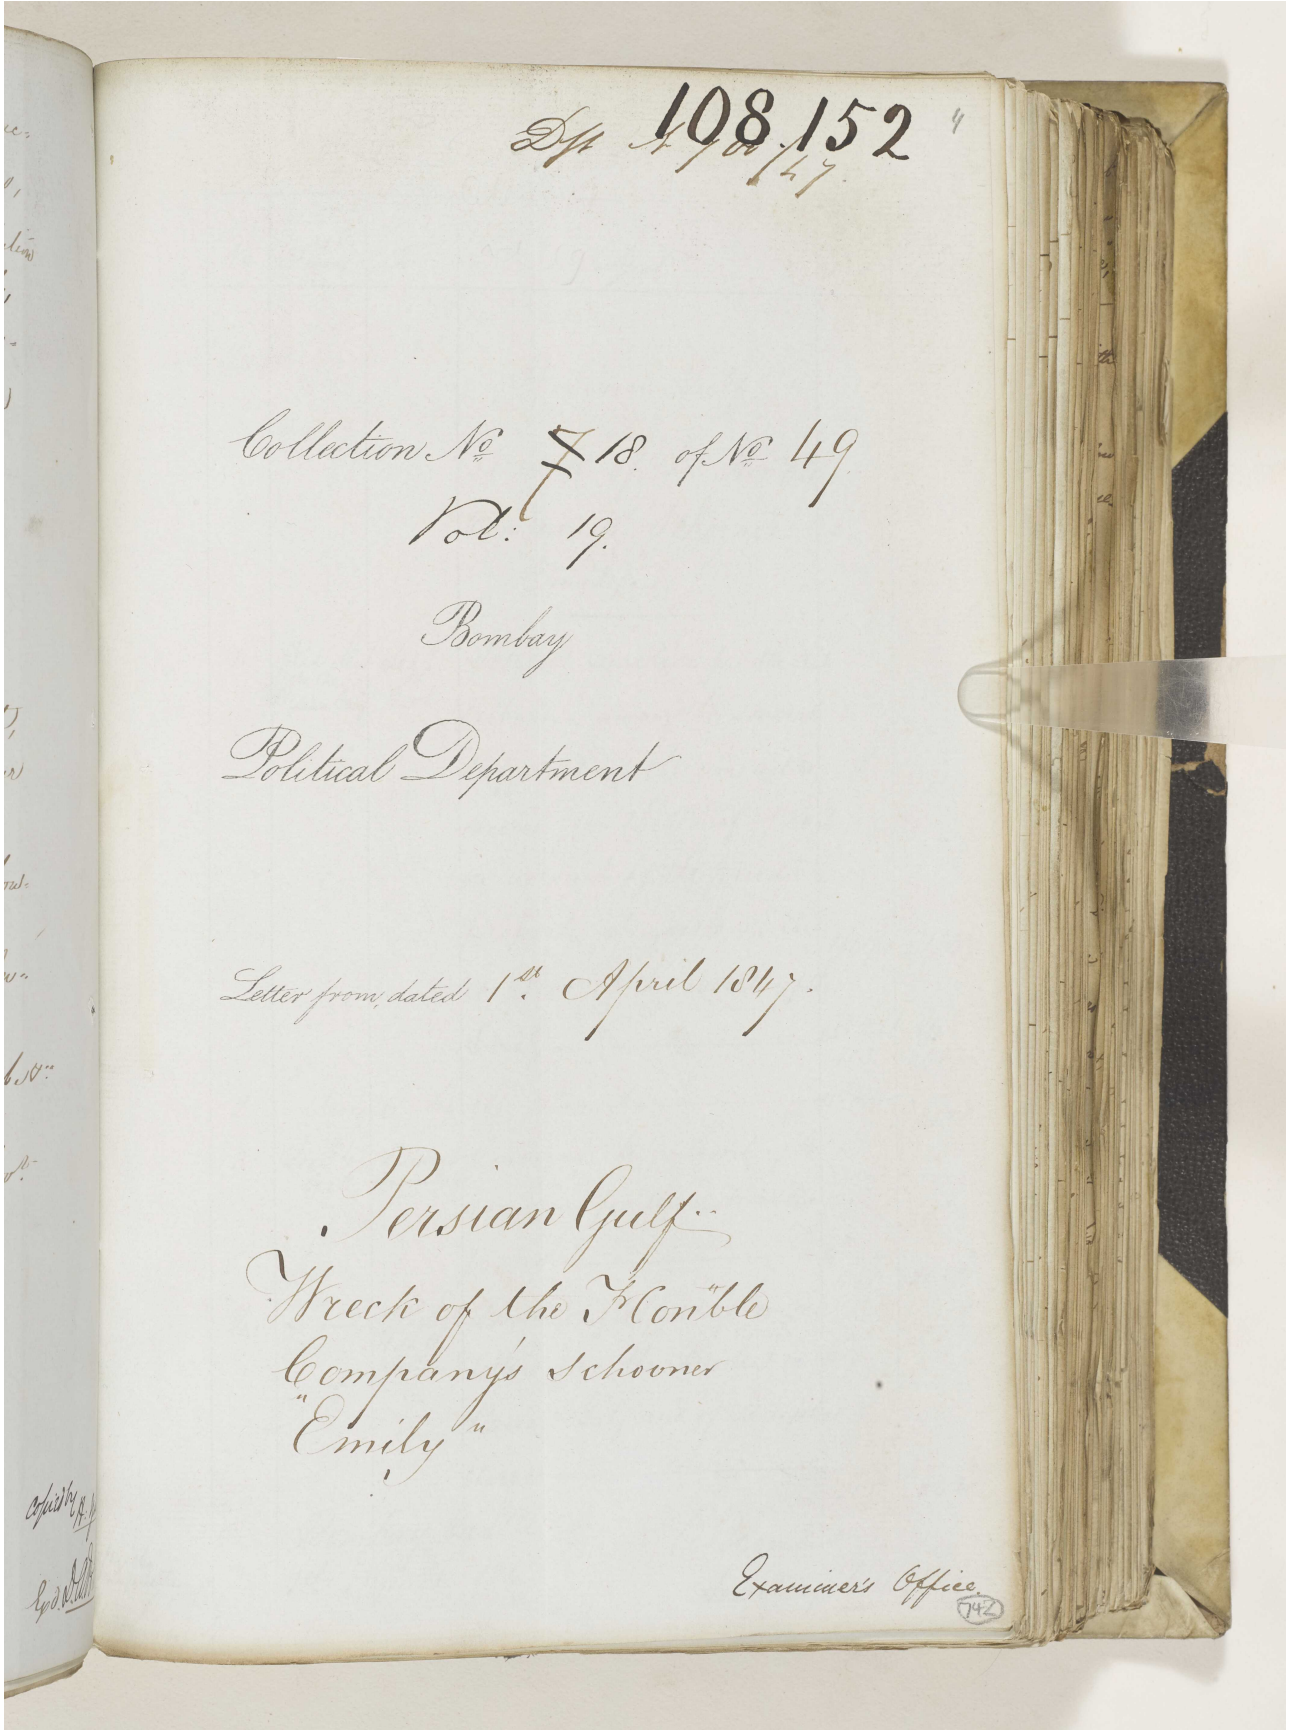 108,152
Dft
Collection No 18. of No 49
Vol: 19.
Bombay
Political Department
Letter from, dated 1st. April 1847.
Persian Gulf..
Wreck of the Hon"ble
Company's Schooner
"Emily"
Examiner's Office.
742
Copied by